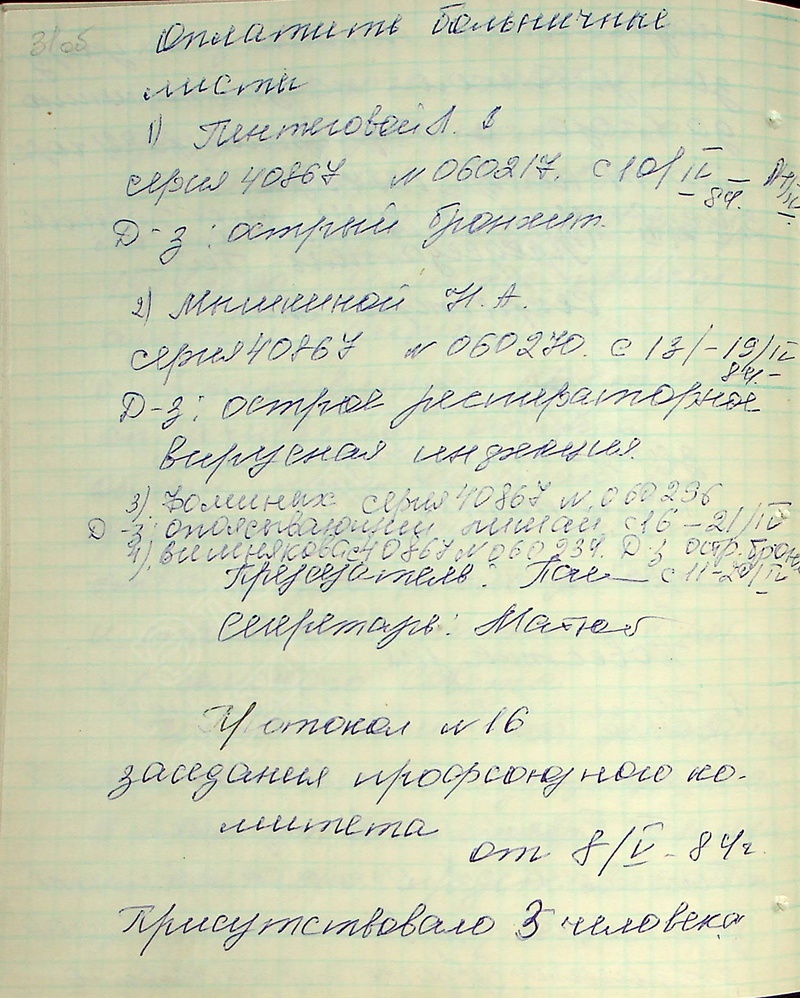 31об
Оплатить больничные
листы
1) Пентеговой А.
серия 40867 №060217. с 10/IV –
84.
Д-з: острый бронхит.
2) Мышкиной Н. А.
серия 40867 №060270. с 13/–19/IV
84.
Д-з: острое респираторное
вирусная инфекция.
3) Фоминых серия 40867 №060236
Д-з: опоясывающий лишай с 16–21/IV
4) Вишнякова с 40867 №060234. Д-з остр. брон
Председатель: с 11-20/IV
Секретарь:
Протокол №16
заседания профсоюзного ко-
митета
от 8/V-84г.
Присутствовало 3 человека